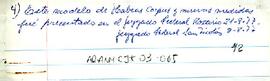 4) Este modelo de Habeas Corpus y nuevas medidas
fué presentado en el juzgado Federal Rosario 21-8-77
juzgado Federal San Nicolás 9-8-77
12
ADANM COR 03-005